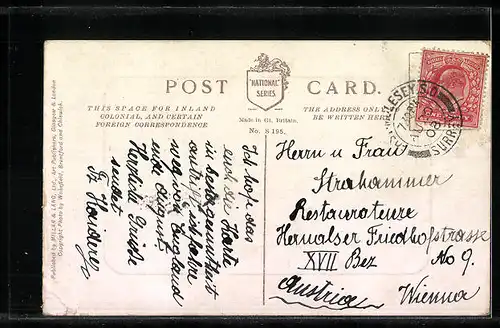 POST CARD.
"NATIONAL" SERIES
THIS SPACE FOR INLAND
COLONIAL, AND CERTAIN
FOREIGN CORRESPONDENCE
Made in Gt. Britain.
No. S 195.
THE ADDRESS ONLY
BE WRITTEN HERE
Published by MILLAR & LANG, LTD., Art Publishers, Glasgow & London
Copyright Photo by Wakefield, Brentford and Chiswick.
Ich hofe das
euch die Karte
in bester gesundheit
antrift ich fahre
weg von England
ende August
Herzliche Grüße
sendet
Fz
MOLESEY S.O.
08
SURREY
Herrn u Frau
Strahammer
Restaurateure
Hernalser Friedhofstrasse
XVII Bez No 9.
Austria Wienna